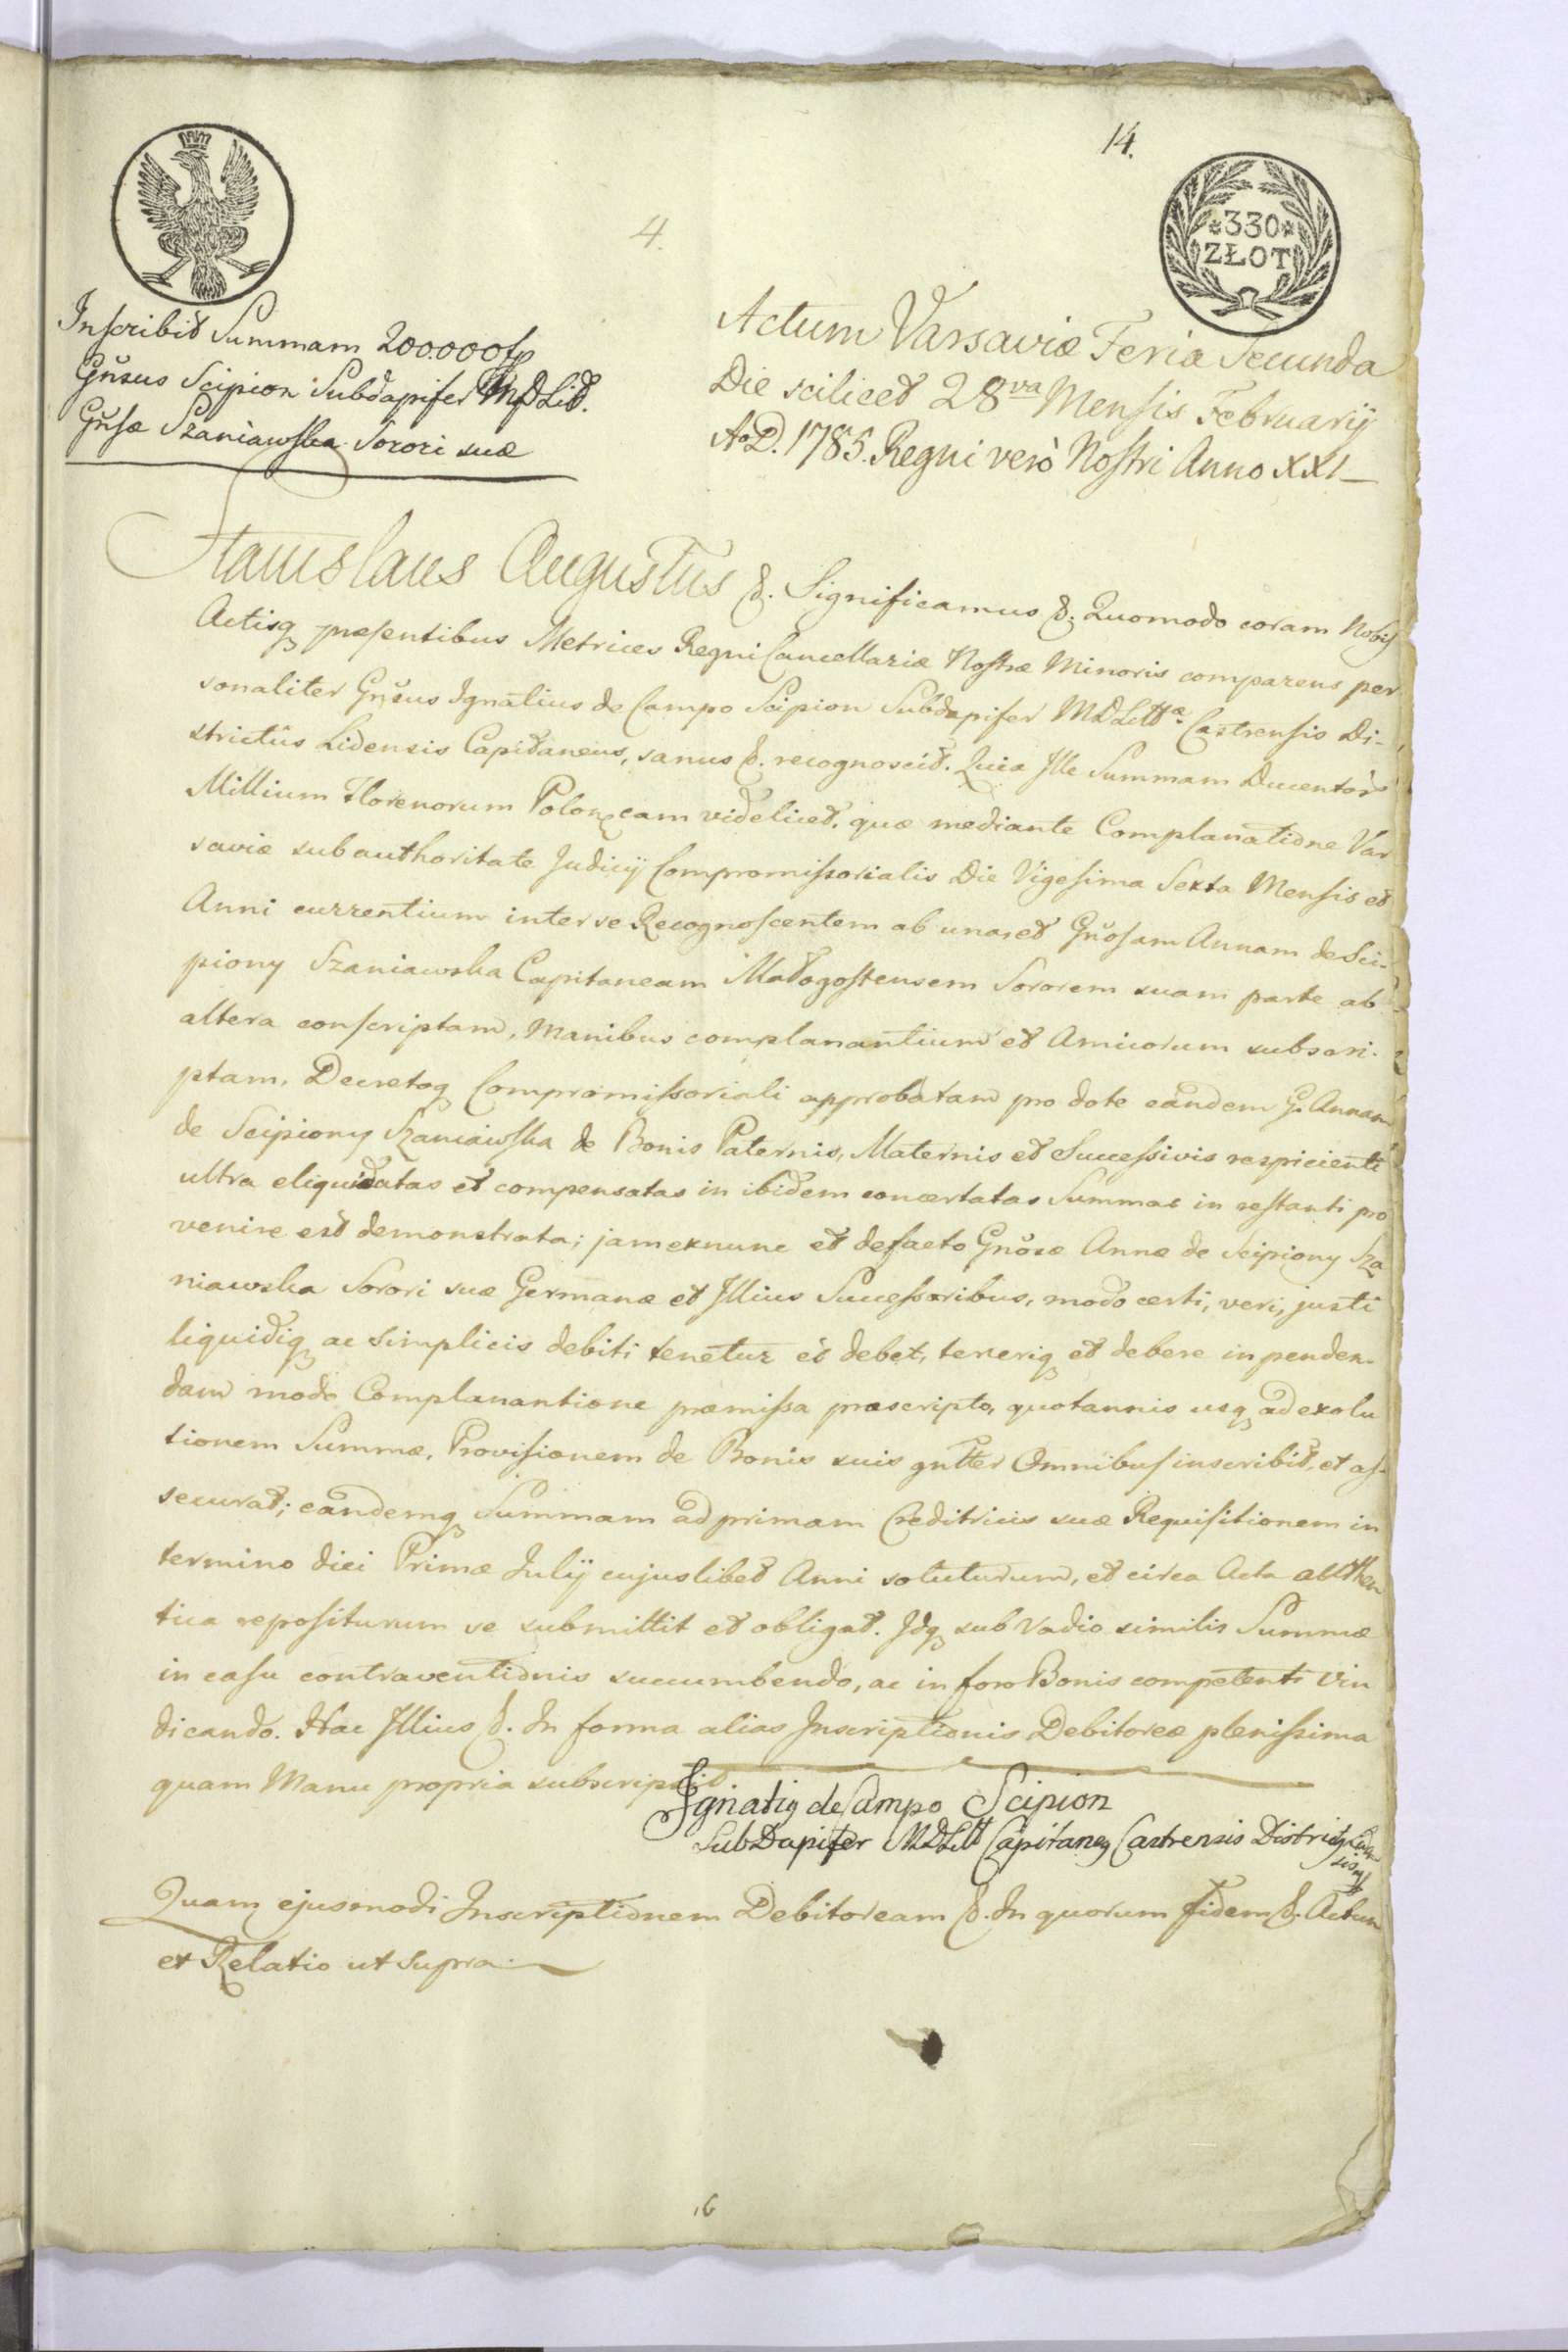 14.
4.
330
ZŁOT
Inscribit Summam 200000 fp
Gnsus Scipion Subdapifer MDLit.
Gnsæ Szaniawska Sorori suæ
Actum Varsaviæ Feria Secunda
Die scilicet 28va Mensis Februarij
AoD. 1785. Regni verò Nostri Anno XXI
Stanislaus Augustus &. Significamus &. Quomodo coram Nobis
Actisq præsentibus Metrices Regni Cancellariæ Nostræ Minoris comparens per
sonaliter Gnsus Ignatius de Campo Scipion Subdapifer MDLittæ. Castrensis Di-
strictûs Lidensis Capitaneus, sanus &. recognoscit. Quia Ille Summam Ducentor
Millium Florenorum Polon eam videlicet, quæ mediante Complanatione Var
saviæ sub authoritate Judicij Compromissorialis Die Vigesima Sexta Mensis et
Anni currentium inter se Recognoscentem ab una, et Gnosam Annam de Sci-
piony Szaniawska Capitaneam Małogostensem Sororem suam parte ab
altera conscriptam, Manibus complanantium et Amicorum subscri-
ptam, Decretoq Compromissoriali approbatam pro dote eandem G. Annam
de Scipiony Szaniawska de Bonis Paternis, Maternis et Successivis respicienti
ultra eliquidatas et compensatas in ibidem concertatas Summas in restanti pro
venire est demonstrata; jam exnunc et defacto Gnosæ Annæ de Scipiony Sza
niawska Sorori suæ Germanæ et Illius Successoribus, modo certi, veri, justi
liquidiq ac Simplicis debiti tenetur et debet, teneriq et debere inpenden-
dam modo Complanantione præmissa præscripto, quotannis usq ad exolu
tionem Summæ, Provisionem de Bonis suis gntter Omnibus inscribit, et as-
securat; eandemq Summam ad primam Creditricis suæ Requisitionem in
termino diei Primæ Julij cujuslibet Anni soluturum, et circa Acta authen
tica repositurum se submittit et obligat. Idq sub Vadio similis Summæ
in casu contraventionis succumbendo, ac in foro Bonis competenti vin
dicando. Hac Illius &. In forma alias Inscriptionis Debitoreæ plenissima
quam Manu propria subscripsit
Ignatiq de Campo Scipion
SubDapifer MDLitt Capitaneq Castrensis Districtq
Quam ejusmodi Inscriptionem Debitoream &. In quorum fidem &. Actum
et Relatio ut supra.
16